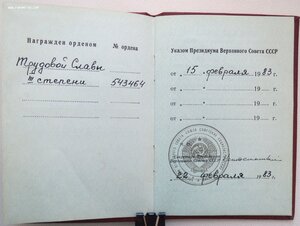 Награжден орденом № ордена
Трудовой Славы
III степени 543464
Указом Президиума Верховного Совета СССР
от „15" февраля 1983 г.
от „ " 19 г.
от „ " 19 г.
от „ " 19 г.
22 февраля 1983 г.